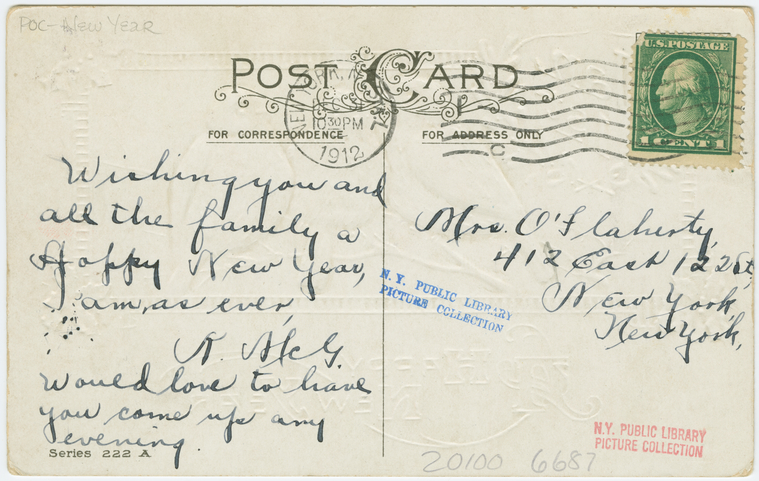 POC - New Year
POST CARD
U.S. POSTAGE
1 CENT 1
NEW YORK, N.Y.
1030PM
1912
C
FOR CORRESPONDENCE
FOR ADDRESS ONLY
Wishing you and
all the family a
Happy New Year,
I am, as ever,
K. McG.
Would love to have
you come up any
evening.
Series 222 A
Mrs. O'Flaherty,
412 East 122 St,
New York,
New York,
N. Y. PUBLIC LIBRARY
PICTURE COLLECTION
N.Y. PUBLIC LIBRARY
PICTURE COLLECTION
20100 6687